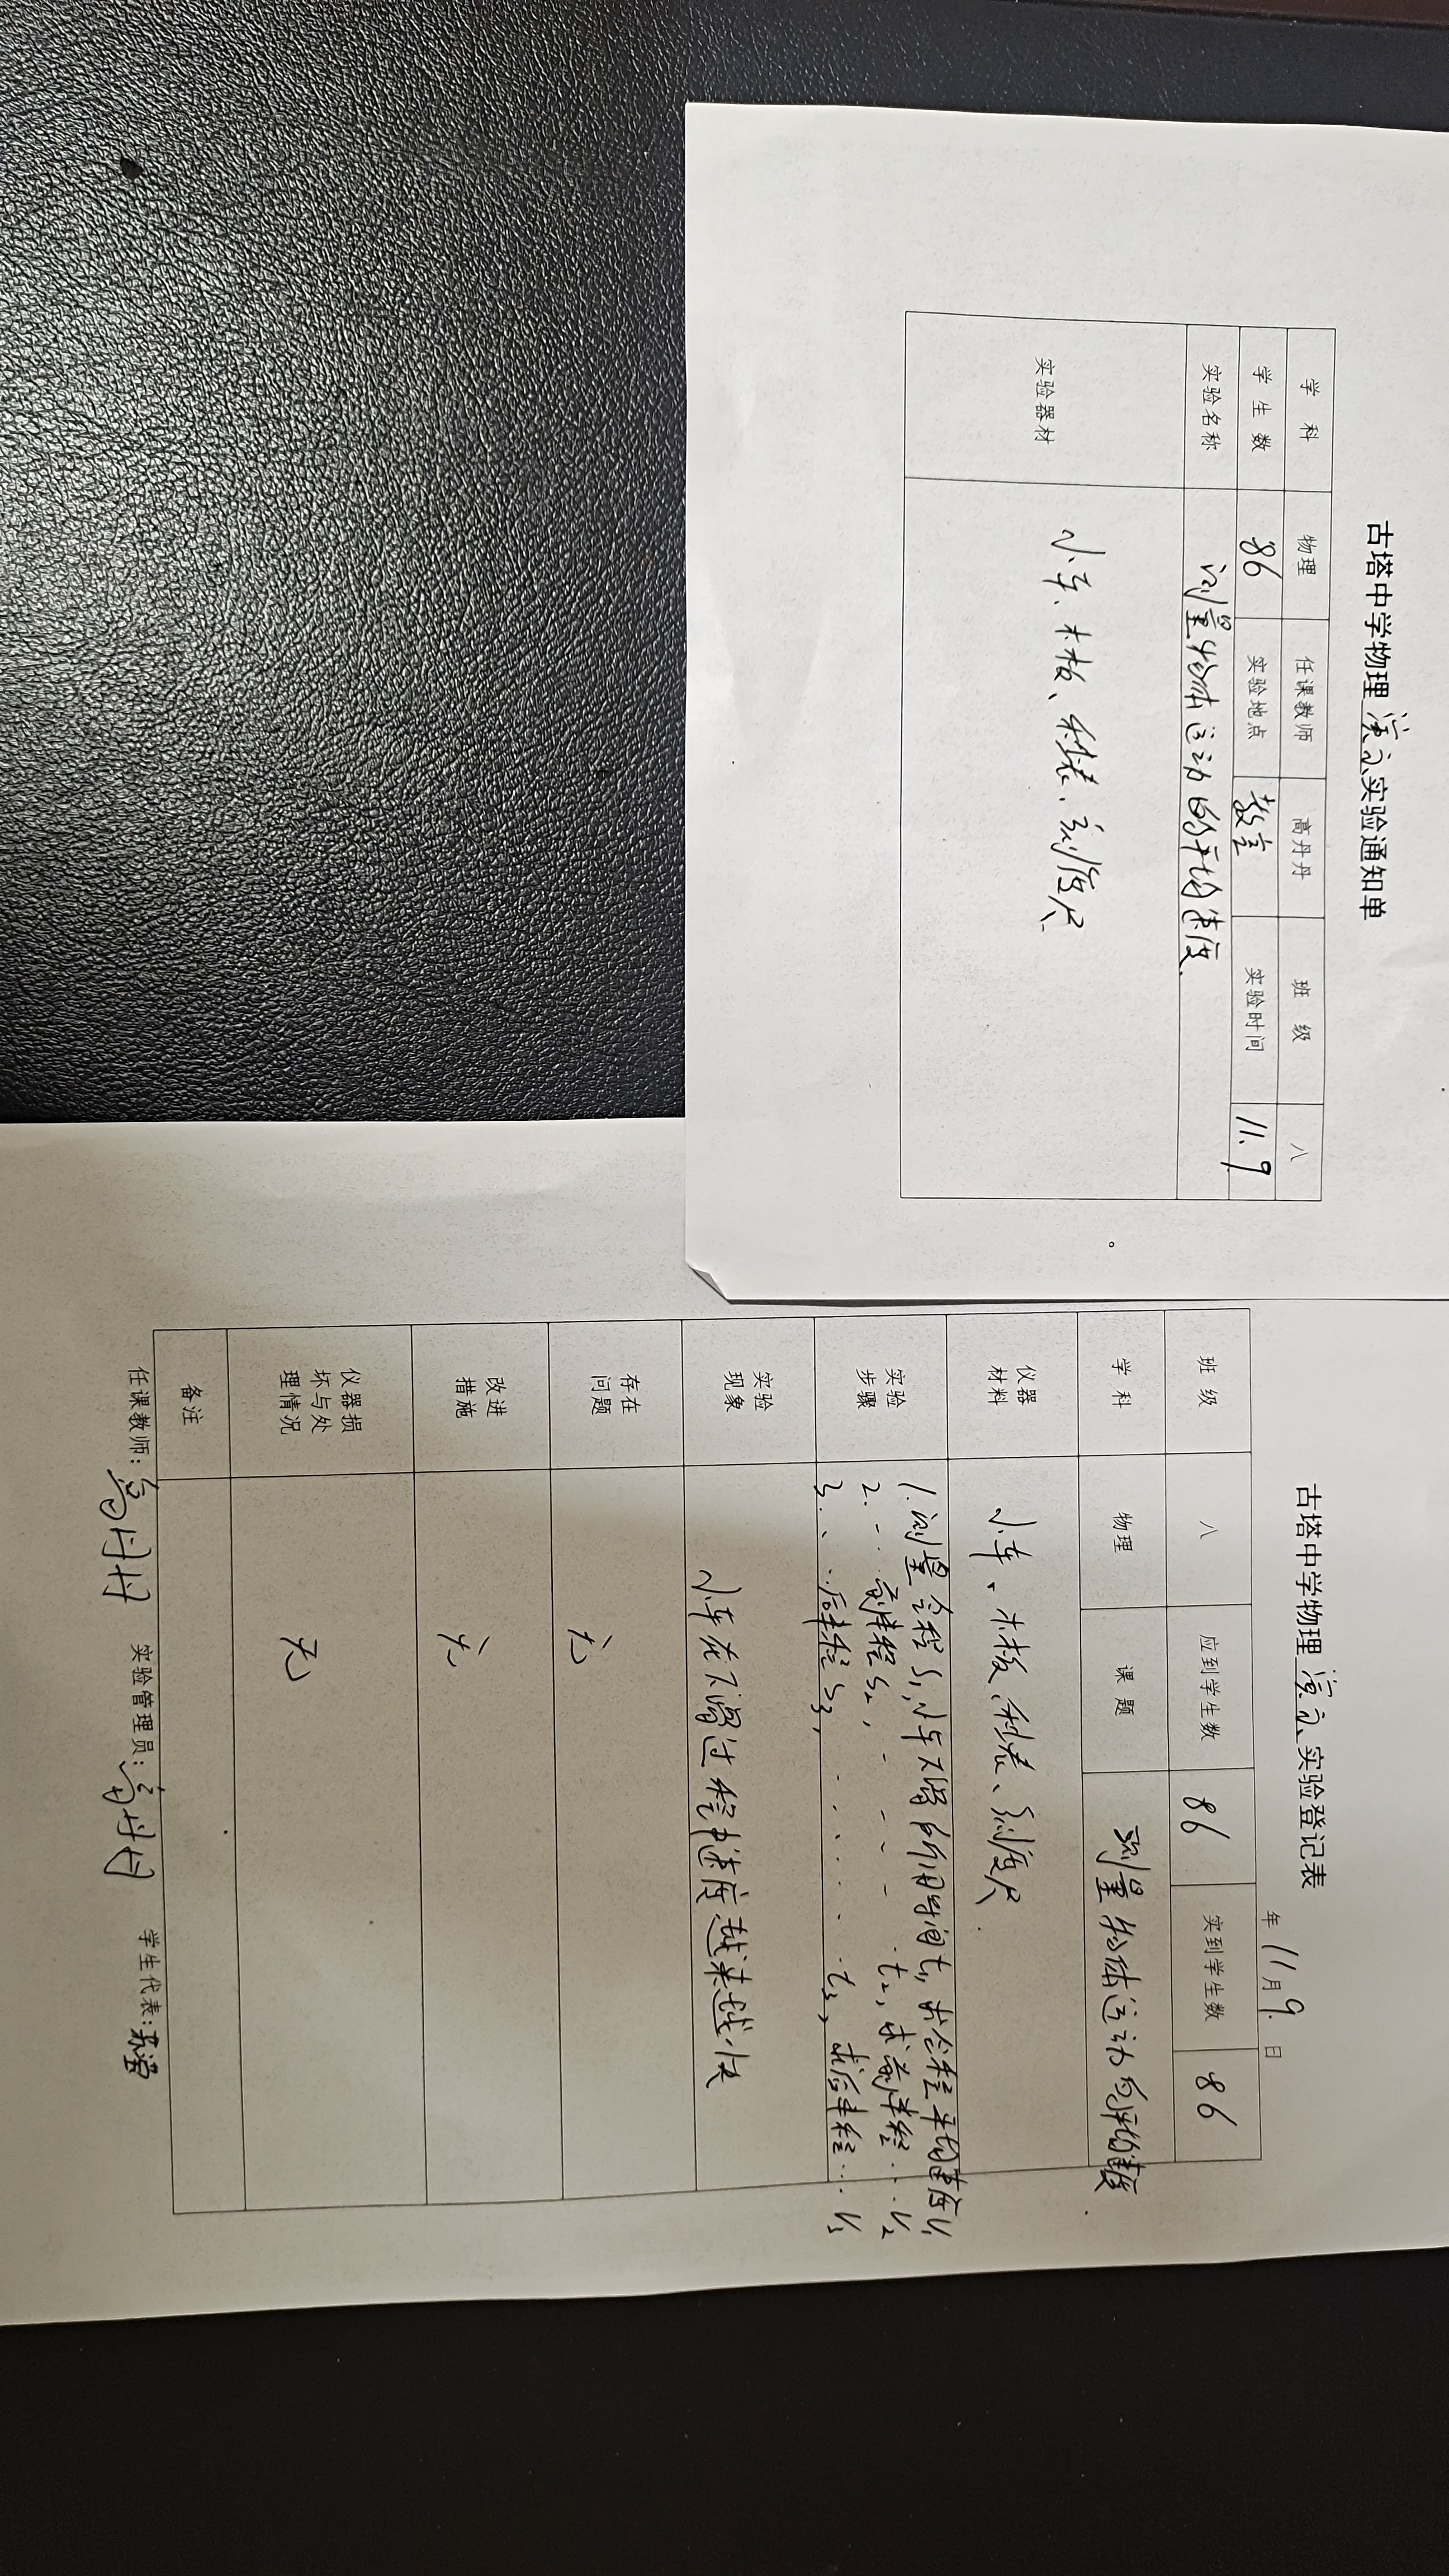 古塔中学物理 演示 实验通知单
学 科 物理 任课教师 高丹丹 班 级 八
学 生 数 86 实验地点 教室 实验时间 11.9
实验名称 测量物体运动的平均速度.
实验器材 小车、木板、秒表、刻度尺
古塔中学物理 演示 实验登记表
年 11 月 9 日
班 级 八 应到学生数 86 实到学生数 86
学 科 物理 课 题 测量物体运动的平均速度
仪器
材料 小车、木板、秒表、刻度尺.
实验
步骤
1. 测量全程S₁,小车下滑所用时间t₁,求全程平均速度V₁
2. - - 前半程S₂, - - - - t₂,求前半程…V₂
3. . . 后半程S₃, . . . . . t₃,求后半程…V₃
实验
现象 小车在下滑过程中速度越来越快
存在
问题 无
改进
措施 无
仪器损
坏与处
理情况 无
备注
任课教师: 高丹丹 实验管理员: 高丹丹 学生代表: